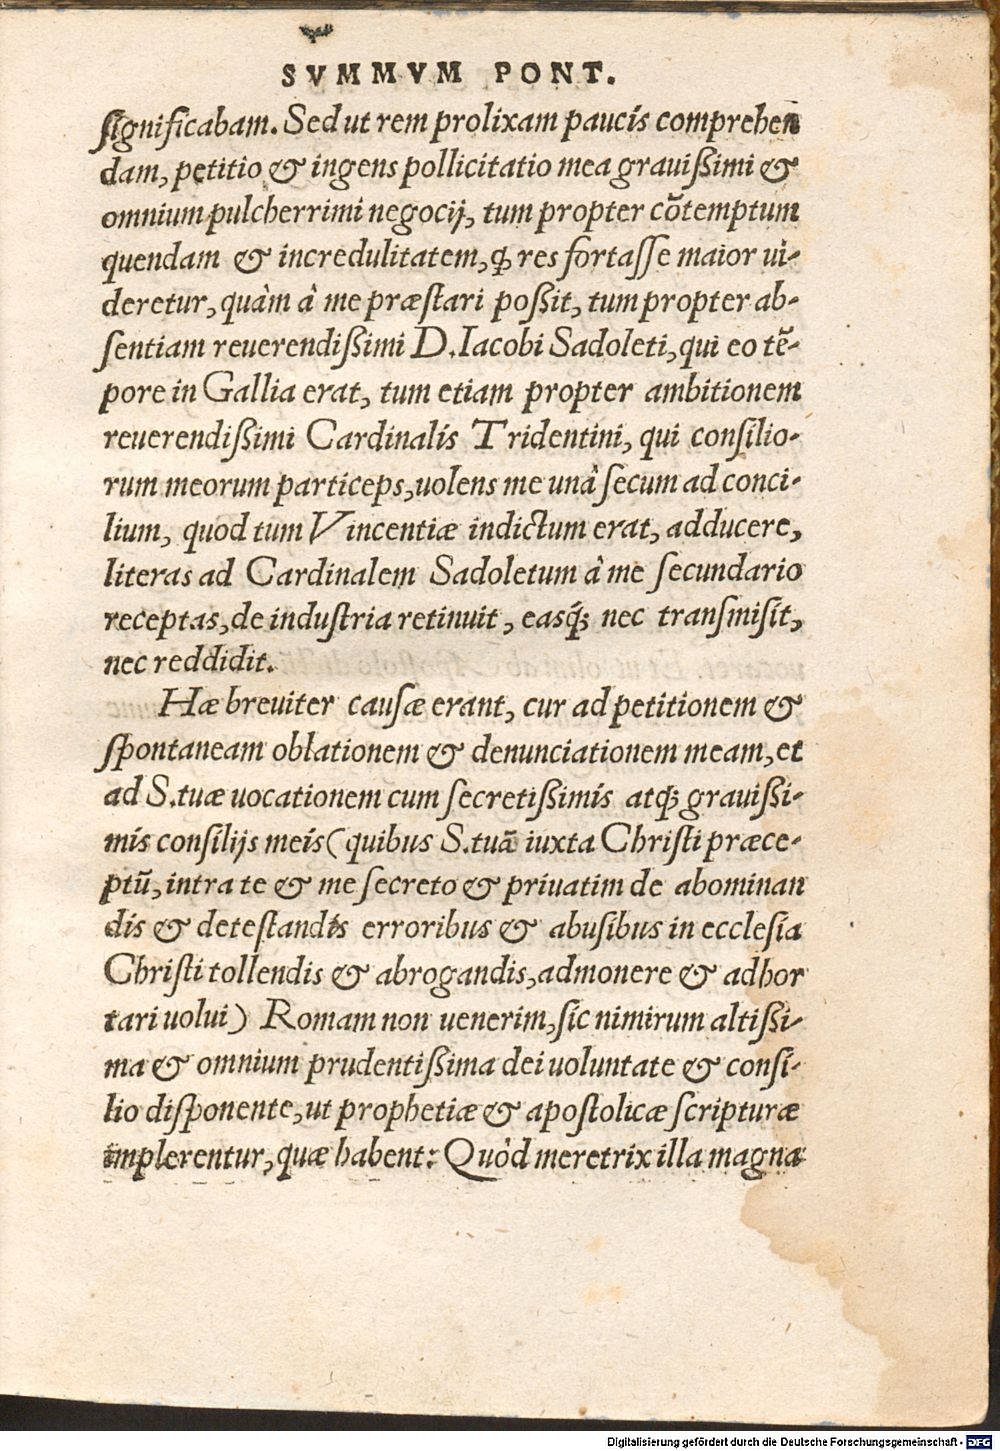 SVMMVM PONT.
significabam. Sed ut rem prolixam paucis comprehen
dam, petitio & ingens pollicitatio mea grauißimi &
omnium pulcherrimi negocij, tum propter cõtemptum
quendam & incredulitatem, ꝙ res fortasse maior ui-
deretur, quàm à me præstari poßit, tum propter ab-
sentiam reuerendißimi D. Iacobi Sadoleti, qui eo tẽ-
pore in Gallia erat, tum etiam propter ambitionem
reuerendißimi Cardinalis Tridentini, qui consilio-
rum meorum particeps, uolens me unà secum ad conci-
lium, quod tum Vincentiæ indictum erat, adducere,
literas ad Cardinalem Sadoletum à me secundario
receptas, de industria retinuit, easq́; nec transmisit,
nec reddidit.
Hæ breuiter causæ erant, cur ad petitionem &
spontaneam oblationem & denunciationem meam, et
ad S. tuæ uocationem cum secretißimis atq́; grauißi-
mis consilijs meis (quibus S. tuã iuxta Christi præce-
ptũ, intra te & me secreto & priuatim de abominan
dis & detestandis erroribus & abusibus in ecclesia
Christi tollendis & abrogandis, admonere & adhor
tari uolui) Romam non uenerim, sic nimirum altißi-
ma & omnium prudentißima dei uoluntate & consi-
lio disponente, ut prophetiæ & apostolicæ scripturæ
implerentur, quæ habent: Quòd meretrix illa magna
Digitalisierung gefördert durch die Deutsche Forschungsgemeinschaft - DFG